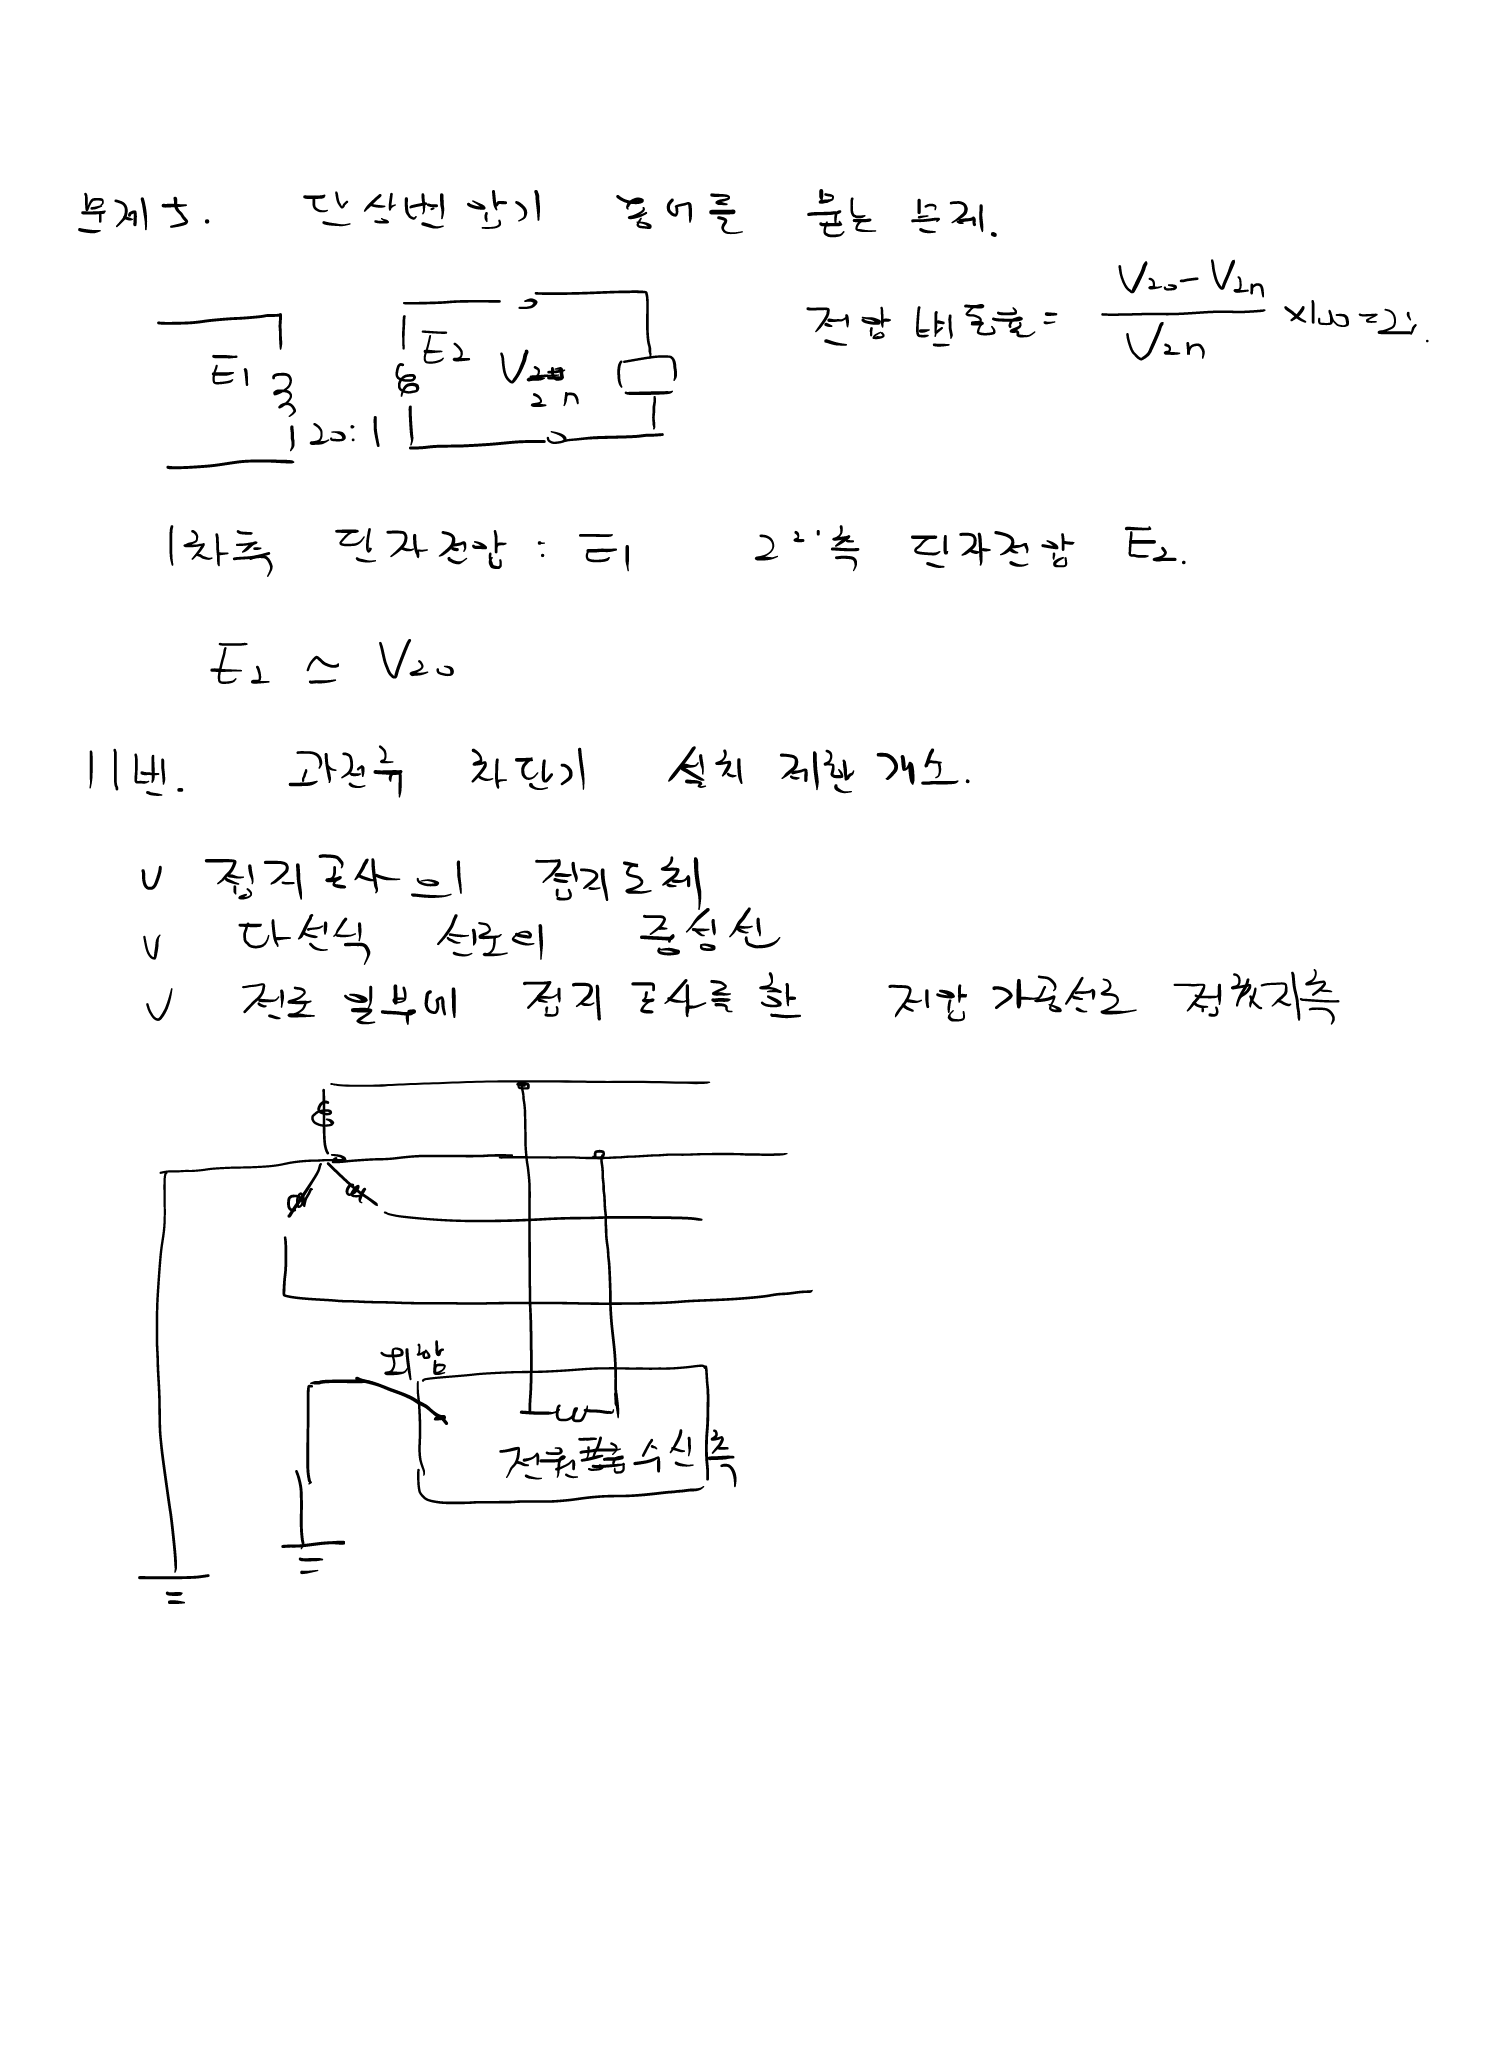 문제 5. 단상변압기 용어를 묻는 문제.
전압 변동률 = (V20 - V2n) / V2n × 100 =
E1 20:1 E2 V2n
1차측 단자전압 : E1 2차측 단자전압 E2.
E2 ≃ V20
11번. 과전류 차단기 설치 제한 개소.
∨ 접지공사의 접지도체
∨ 다선식 선로의 중성선
∨ 전로 일부에 접지 공사를 한 저압 가공선로 접지측
외함
전원 수신측